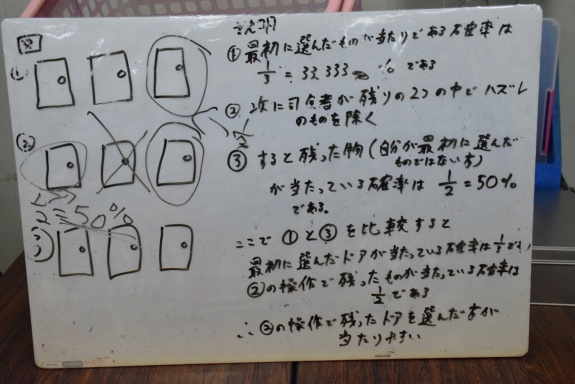 図
(1)
(2)
1/2
1
2 = 50%
(3)
説明
① 最初に選んだものが当たりである確率は
1/3 = 33.333…% である
② 次に司会者が残りの2つの中でハズレ
のものを除く
③ すると残った(自分が最初に選んだ
ものではない方)
が当たっている確率は 1/2 = 50%
である。
ここで ① と ③ を比較すると
最初に選んだドアが当たっている確率は 1/3 で、
②の操作で残ったものが当たっている確率は
1/2 である
∴ ②の操作で残ったドアを選んだ方が
当たりやすい